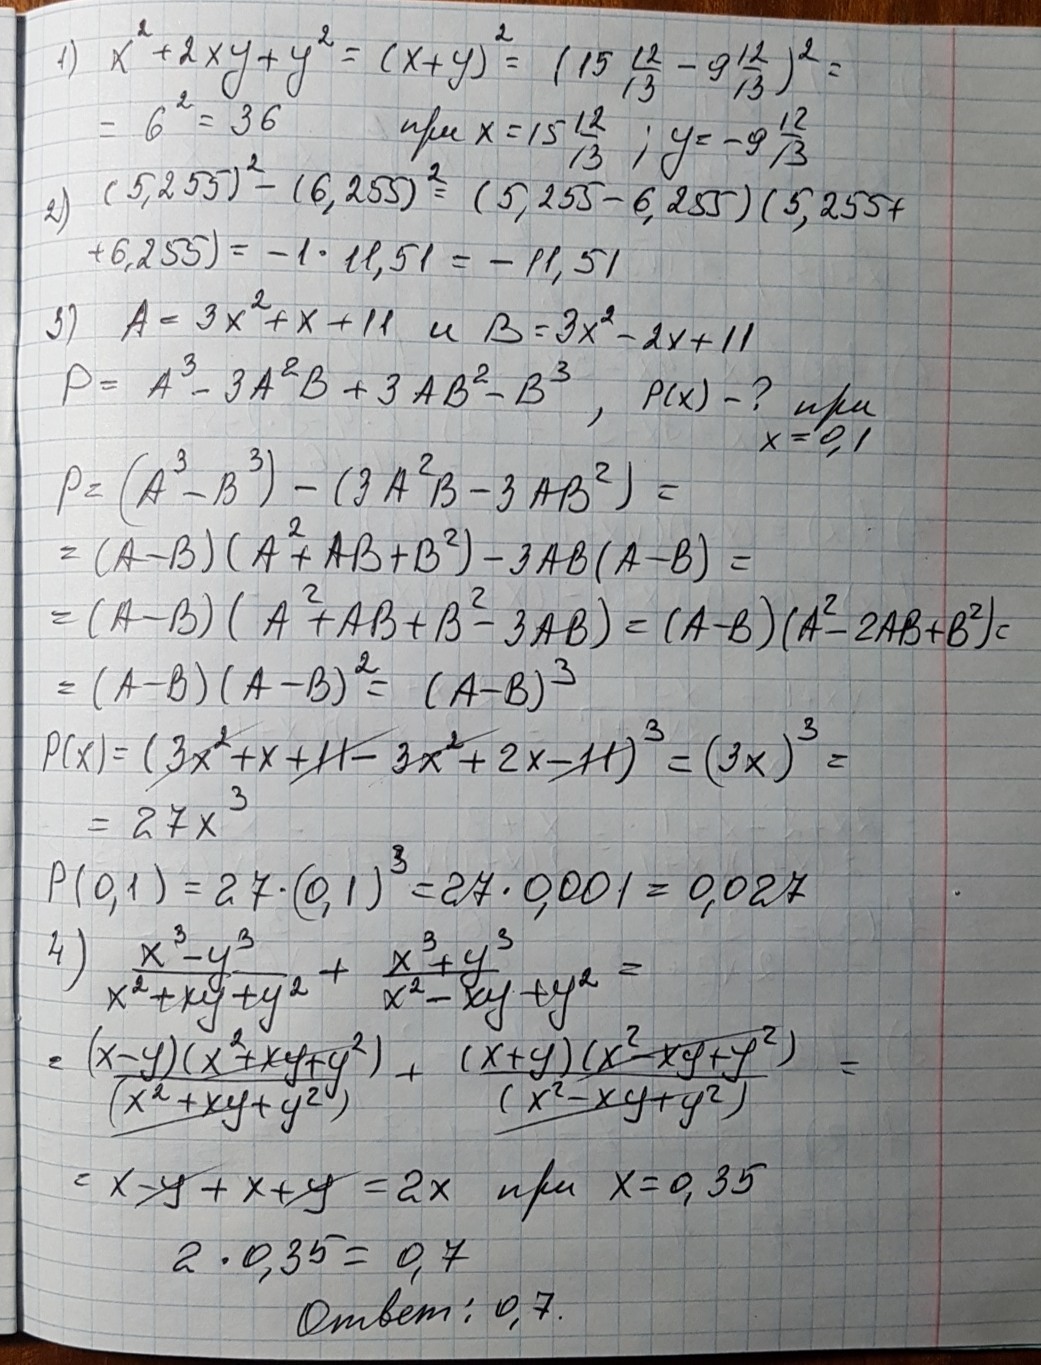 1) x² + 2xy + y² = (x+y)² = (15 12/13 − 9 12/13)² =
= 6² = 36 при x = 15 12/13 ; y = −9 12/13
2) (5,255)² − (6,255)² = (5,255 − 6,255)(5,255+
+6,255) = −1 · 11,51 = −11,51
3) A = 3x² + x + 11 и B = 3x² − 2x + 11
P = A³ − 3A²B + 3AB² − B³ , P(x) − ? при
x = 0,1
P = (A³ − B³) − (3A²B − 3AB²) =
= (A−B)(A² + AB + B²) − 3AB(A−B) =
= (A−B)(A² + AB + B² − 3AB) = (A−B)(A² − 2AB + B²) =
= (A−B)(A−B)² = (A−B)³
P(x) = (3x² + x + 11 − 3x² + 2x − 11)³ = (3x)³ =
= 27x³
P(0,1) = 27 · (0,1)³ = 27 · 0,001 = 0,027
4) (x³ − y³)/(x² + xy + y²) + (x³ + y³)/(x² − xy + y²) =
= (x−y)(x² + xy + y²)/(x² + xy + y²) + (x+y)(x² − xy + y²)/(x² − xy + y²) =
= x − y + x + y = 2x при x = 0,35
2 · 0,35 = 0,7
Ответ: 0,7.